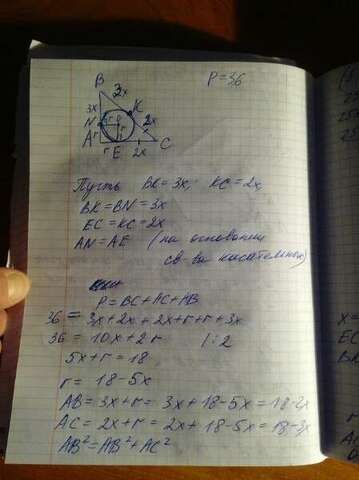 P=36
B
3x
3x
K
N
2x
A r
C
r E 2x
Пусть BK=3x, KC=2x,
BK=BN=3x
EC=KC=2x
AN=AE (на основании
св-ва касательных)
P=BC+AC+AB
36=3x+2x+2x+r+r+3x
36=10x+2r |:2
5x+r=18
r=18-5x
AB=3x+r=3x+18-5x=18-2x
AC=2x+r=2x+18-5x=18-3x
AB²=AB²+AC²